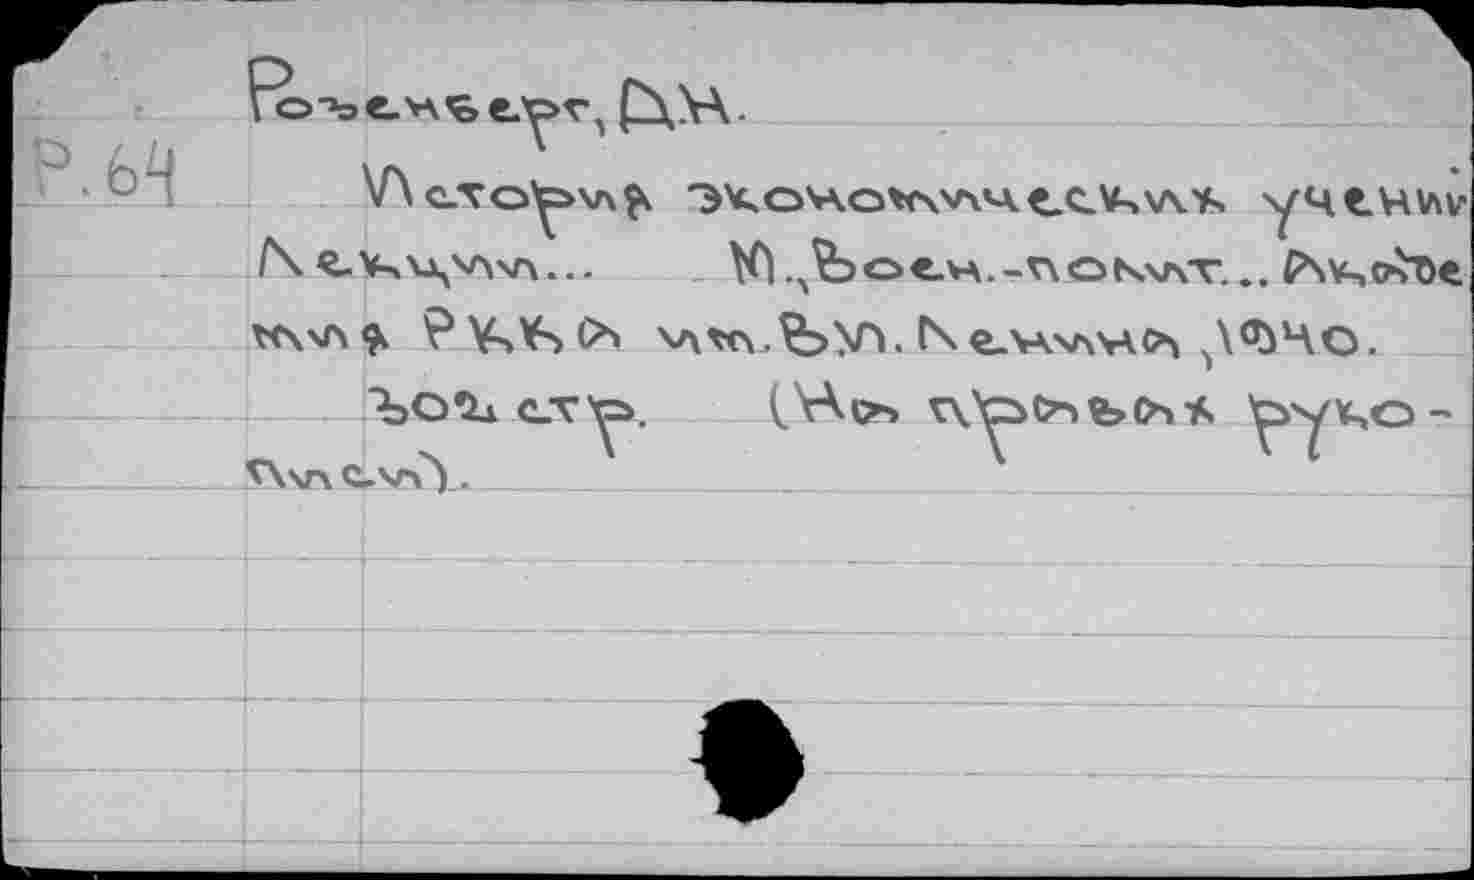 Розенберг, Д.Н.
Р.64
История экономических учений
Лекции... М., Воен.-полит. .. Акаде
мия РККА им. В.И. Ленина, 1940.
302 стр. (На правах руко-
писи).